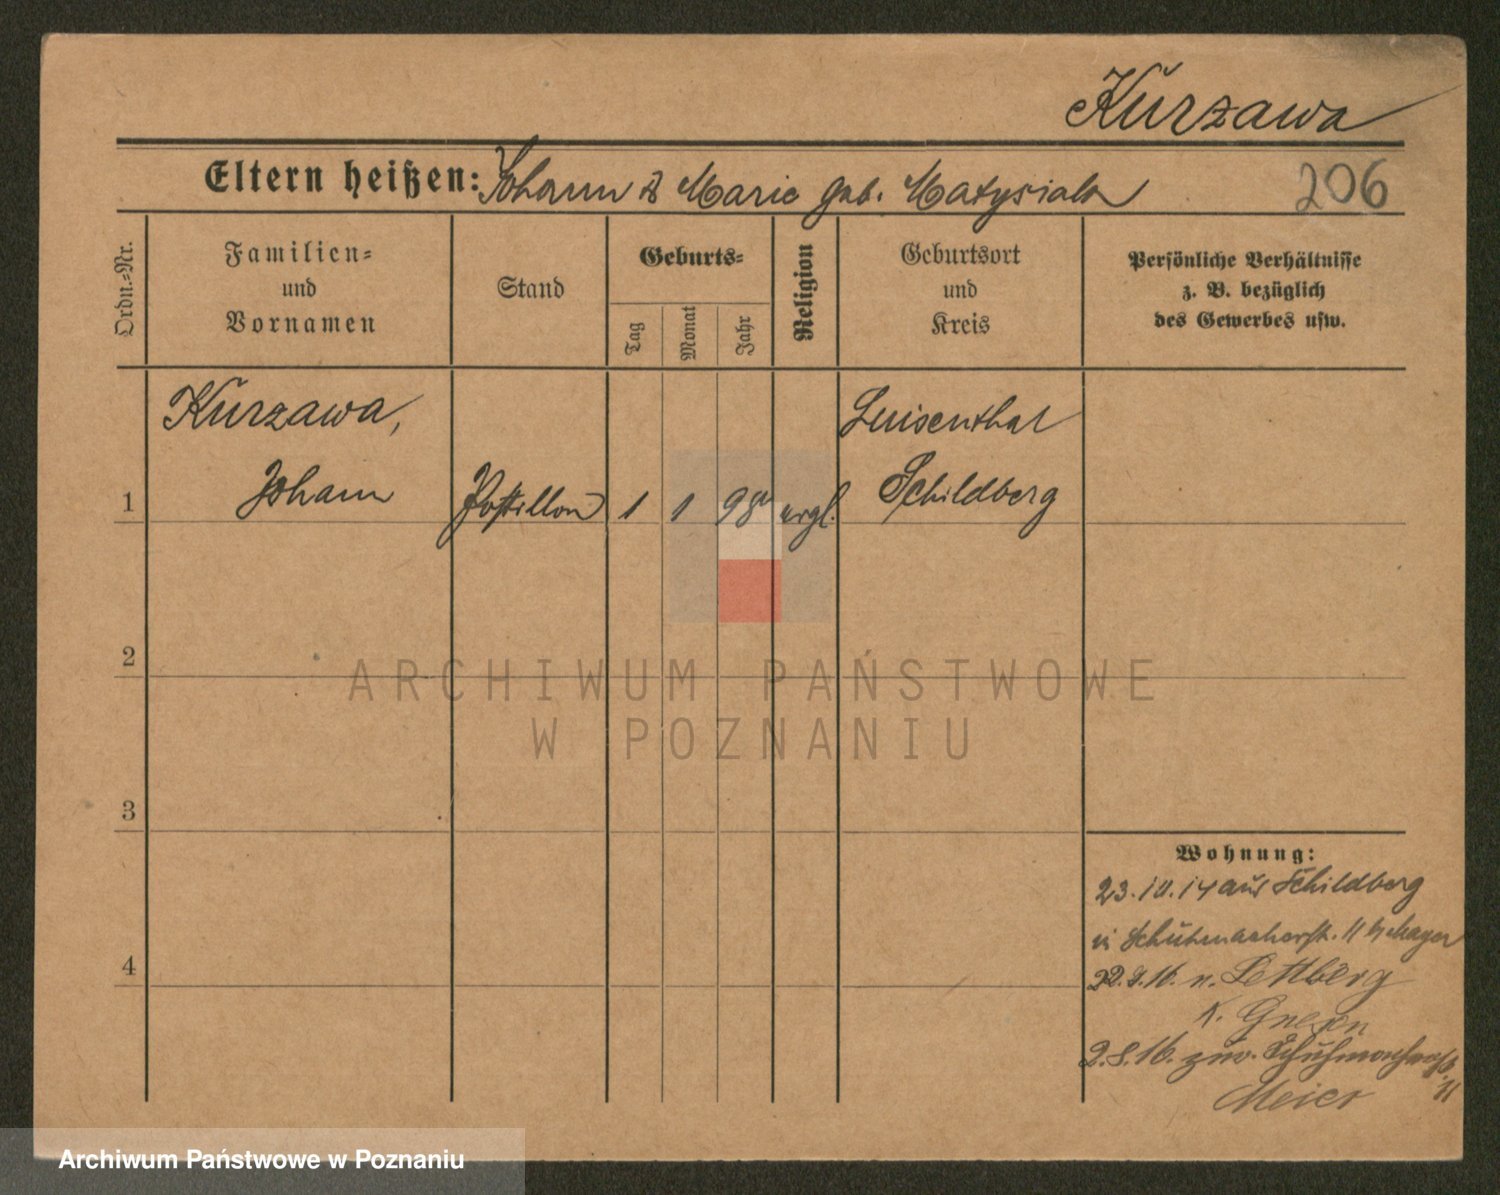 Kurzawa
Eltern heißen: Johann & Marie geb. Matysiak
206
Ordn.=Nr.
Familien=
und
Vornamen
Stand
Geburts=
Tag
Monat
Jahr
Religion
Geburtsort
und
Kreis
Persönliche Verhältnisse
z. B. bezüglich
des Gewerbes usw.
1
Kurzawa,
Johann
Postillon
1
1
98
Luisenthal
Schildberg
2
3
4
Wohnung:
23.10.14 aus Schildberg
11
n.
K. Gnesen
2.8.16. zur.
11
Meier
ARCHIWUM PAŃSTWOWE
W POZNANIU
Archiwum Państwowe w Poznaniu